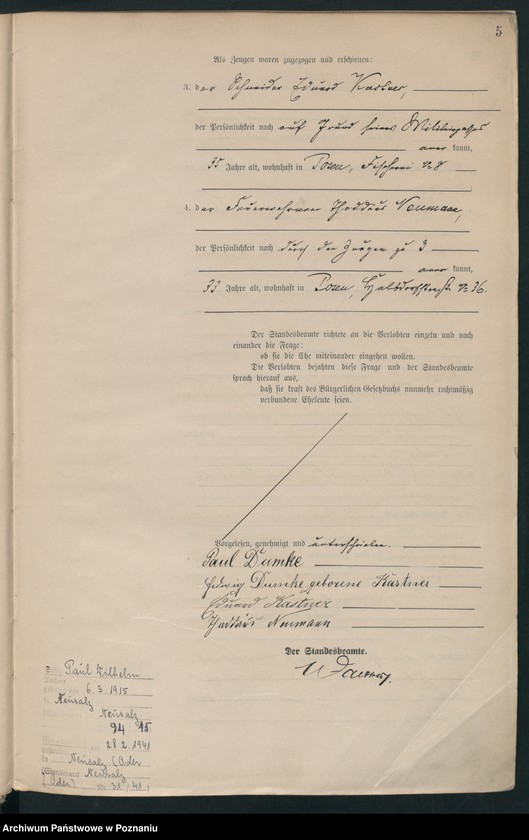 5
Als Zeugen waren zugezogen und erschienen:
3. der Schneider Eduard Kastner,
der Persönlichkeit nach auf Grund seines Militärpasses
aner kannt,
35 Jahre alt, wohnhaft in Posen, Fischerei № 8
4. der Feuerwehrmann Thaddäus Neumann,
der Persönlichkeit nach durch den Zeugen zu 3
aner kannt,
33 Jahre alt, wohnhaft in Posen, Halbdorfstraße № 36.
Der Standesbeamte richtete an die Verlobten einzeln und nach
einander die Frage:
ob sie die Ehe miteinander eingehen wollen.
Die Verlobten bejahten diese Frage und der Standesbeamte
sprach hierauf aus,
daß sie kraft des Bürgerlichen Gesetzbuchs nunmehr rechtmäßig
verbundene Eheleute seien.
Vorgelesen, genehmigt und unterschrieben.
Paul Dumke
Hedwig Dumke geborene Kästner
Eduard Kastner
Thadäus Neumann
Der Standesbeamte.
Paul Wilhelm
6. 3. 1915
Neusalz
Neusalz
94 15
28 2. 1941
Neusalz (Oder
Neusalz
(Oder) Nr. 31 / 41
Archiwum Państwowe w Poznaniu